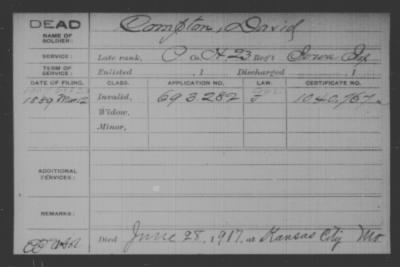 DEAD
NAME OF SOLDIER:
Compton, David
SERVICE:
Late rank, P Co. H, 23 Reg't Iowa Inf
TERM OF SERVICE:
Enlisted , 1 Discharged , 1
DATE OF FILING. CLASS. APPLICATION NO. LAW. CERTIFICATE NO.
1889 Mar 12 Invalid, 693.282 1040.767
Widow,
Minor,
ADDITIONAL SERVICES:
REMARKS:
Died June 28, 1917, at Kansas City Mo